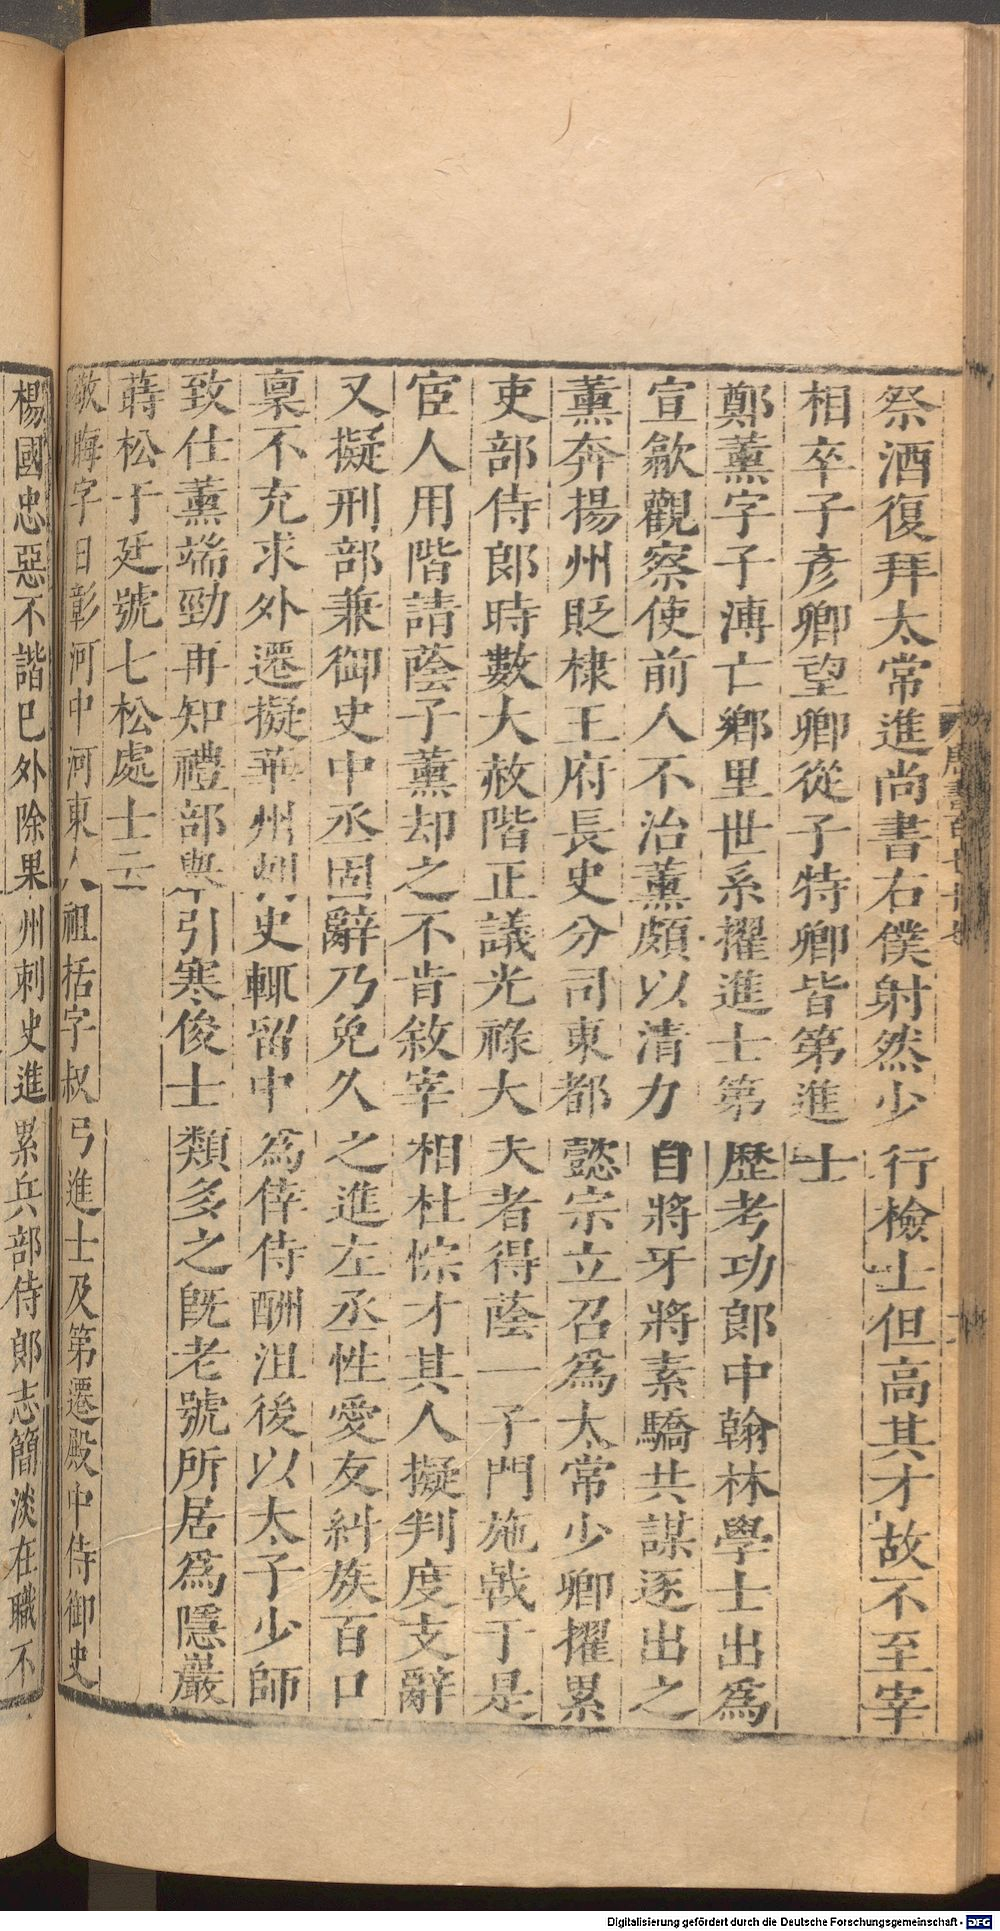 祭酒復拜太常進尚書右僕射然少行檢士但高其才故不至宰
相卒子彥卿望卿從子特卿皆第進士
鄭薰字子溥亡鄉里世系擢進士第歷考功郎中翰林學士出為
宣歙觀察使前人不治薰頗以清力自將牙將素驕共謀逐出之
薰奔揚州貶棣王府長史分司東都懿宗立召為太常少卿擢累
吏部侍郎時數大赦階正議光祿大夫者得蔭一子門施戟于是
宦人用階請蔭子薰却之不肯敘宰相杜悰才其人擬判度支辭
又擬刑部兼御史中丞固辭乃免久之進左丞性愛友糾族百口
稟不充求外遷擬華州刺史輒留中為倖侍酬沮後以太子少師
致仕薰端勁再知禮部舉引寒俊士類多之既老號所居為隱巖
蒔松于廷號七松處士云
敬晦字日彰河中河東人祖括字叔弓進士及第遷殿中侍御史
楊國忠惡不諧已外除果州刺史進累兵部侍郎志簡淡在職不
Digitalisierung gefördert durch die Deutsche Forschungsgemeinschaft - DFG